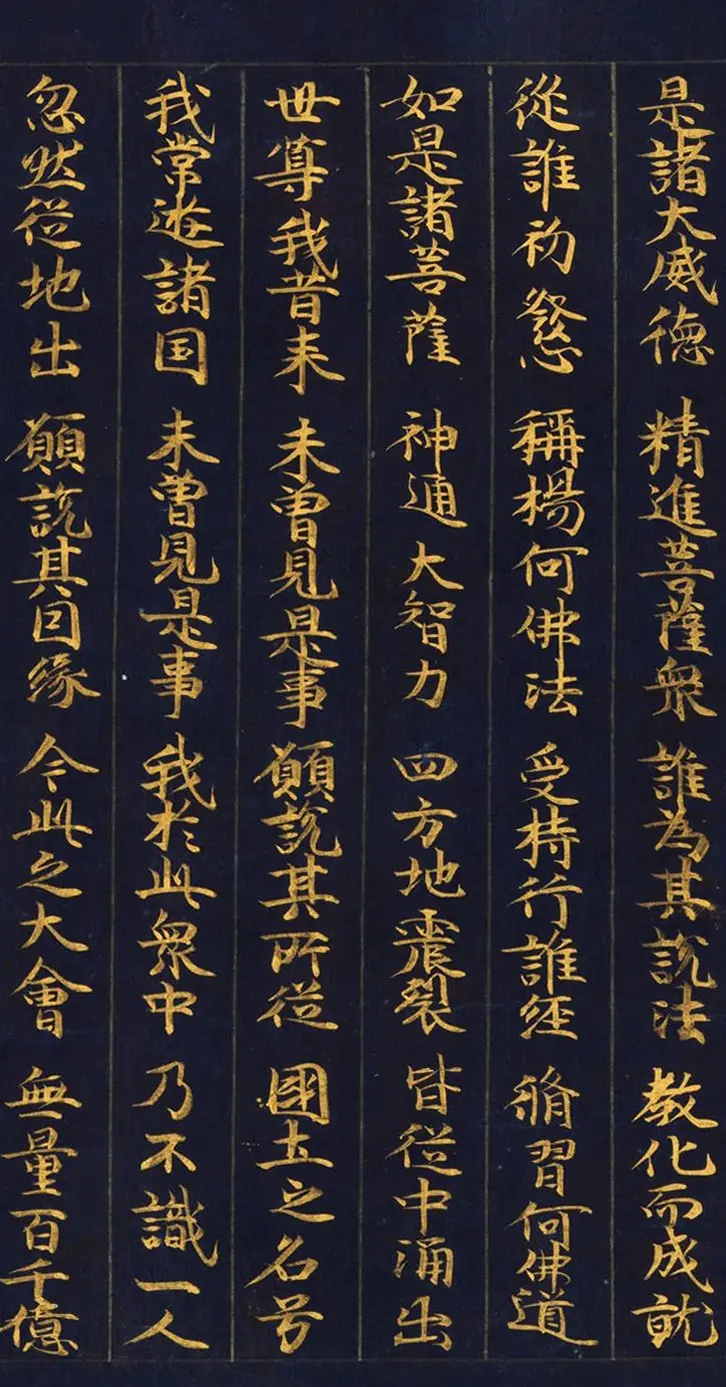 是諸大威德　精進菩薩衆　誰為其說法　教化而成就
從誰初發心　稱楊何佛法　受持行誰經　脩習何佛道
如是諸菩薩　神通大智力　四方地震裂　皆從中涌出
世尊我昔来　未曽見是事　願說其所從　國土之名号
我常遊諸国　未曽見是事　我於此衆中　乃不識一人
忽然從地出　願說其因縁　今此之大會　無量百千億